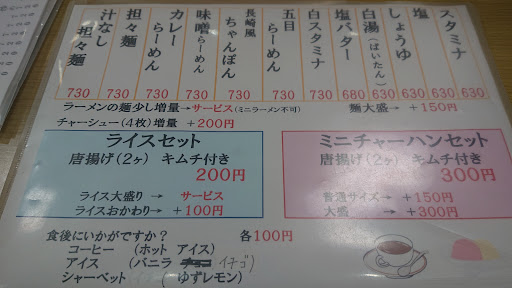 スタミナ 630
塩 630
しょうゆ 630
白湯(ぱいたん) 630
塩バター 680
白スタミナ 730
五目らーめん 730
長崎風ちゃんぽん 730
味噌らーめん 730
カレーらーめん 730
担々麺 730
汁なし担々麺 730
ラーメンの麺少し増量→サービス(ミニラーメン不可) 麺大盛→ +150円
チャーシュー(4枚)増量→ +200円
ライスセット
唐揚げ(2ヶ) キムチ付き
200円
ライス大盛り → サービス
ライスおかわり→ +100円
ミニチャーハンセット
唐揚げ(2ヶ) キムチ付き
300円
普通サイズ→ +150円
大盛 → +300円
食後にいかがですか? 各100円
コーヒー (ホット アイス)
アイス (バニラ チョコ イチゴ)
シャーベット( ゆずレモン)